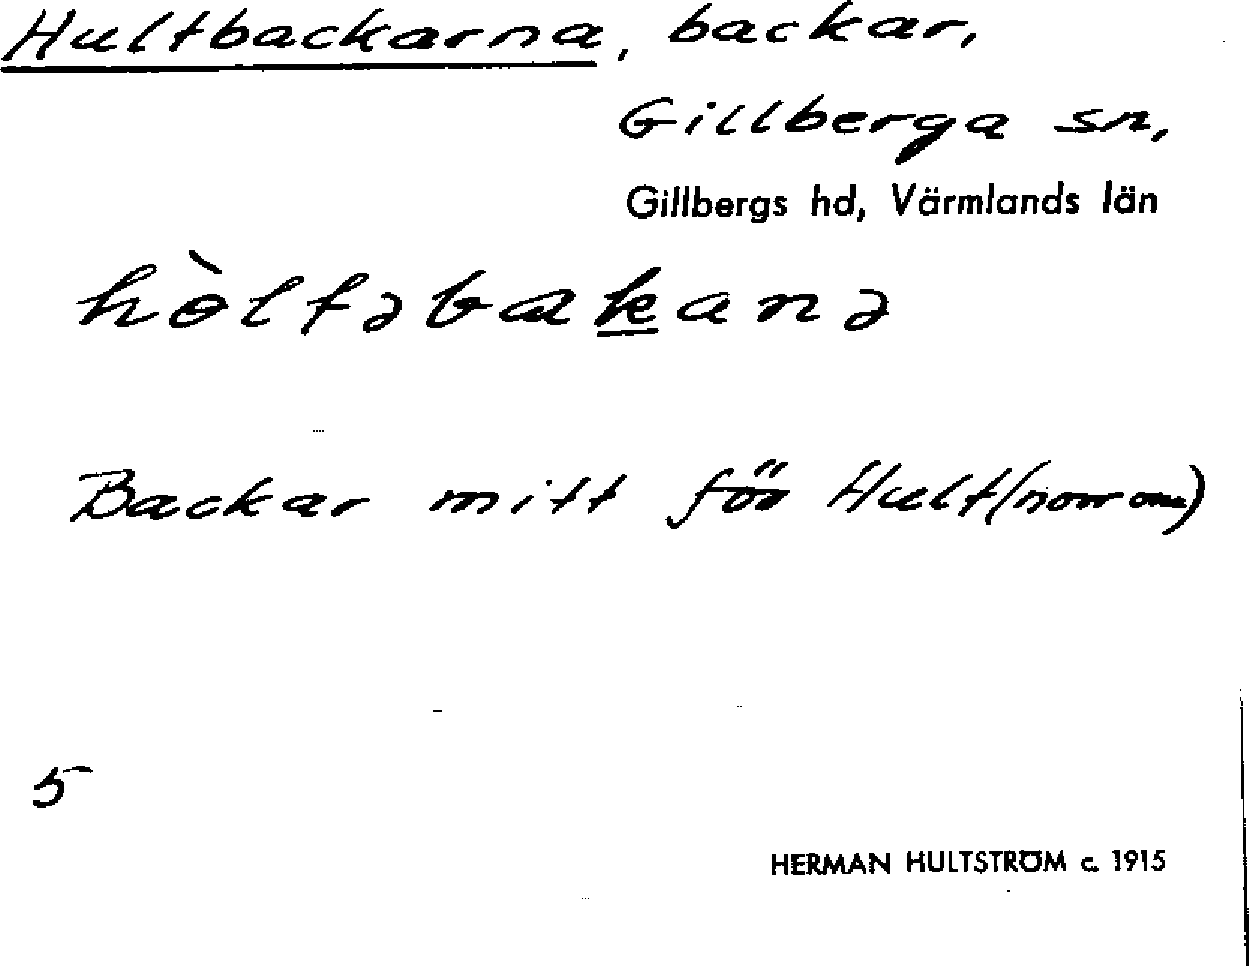 Hultbackarna, backar,
Gillberga sn,
Gillbergs hd, Värmlands län
hɵ̀ltəbakanə
Backar mitt för Hult (norr om)
5
HERMAN HULTSTRÖM c. 1915